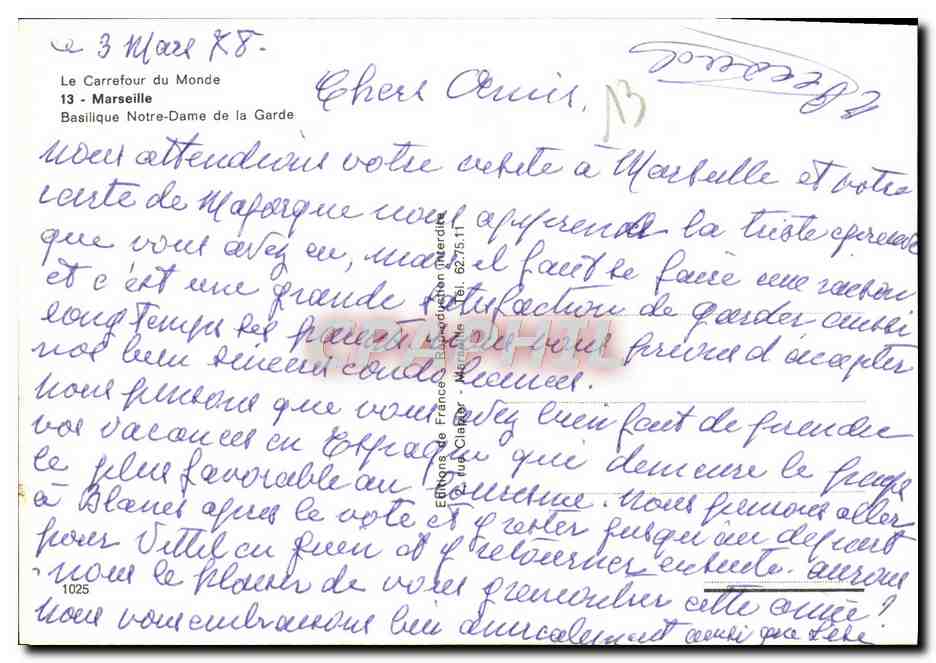 le 3 Mars 78.
Le Carrefour du Monde
13 - Marseille
Basilique Notre-Dame de la Garde
Chers Amis,
13
nous attendions votre visite à Marseille et votre
carte de Majorque nous apprend la triste épreuve
que vous avez eu, mais il faut se faire une raison
et c'est une grande satisfaction de garder aussi
longtemps ses parents nous vous prions d'accepter
nos bien sincères condoléances.
nous pensons que vous avez bien fait de prendre
vos vacances en Espagne qui demeure le pays
le plus favorable au tourisme. nous pensons aller
à Blanes après le vote et y rester jusqu'au départ
pour Vittel en juin et y retourner ensuite. aurons
nous le plaisir de vous y rencontrer cette année?
nous vous embrassons bien amicalement ainsi que
Editions de France - Reproduction interdite
rue Clapier - Marseille - Tél. 62.75.11
CPAPHIL
1025